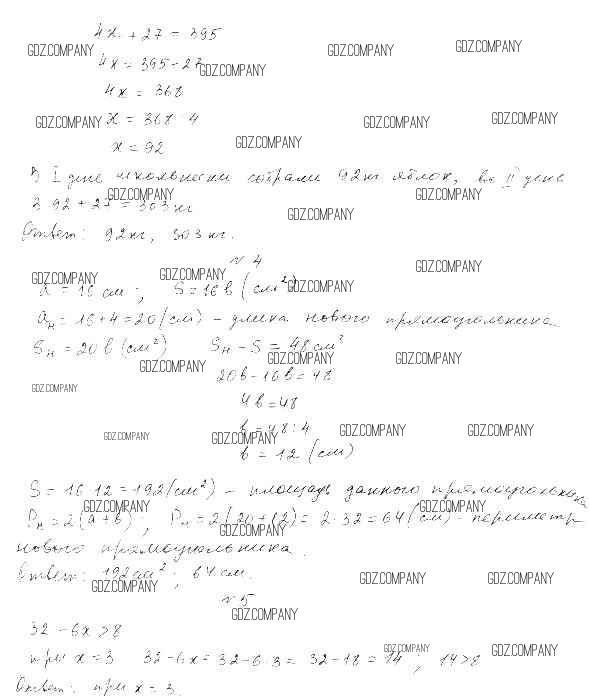 4x + 27 = 395
GDZ.COMPANY GDZ.COMPANY GDZ.COMPANY
4x = 395 - 27
GDZ.COMPANY
4x = 368
GDZ.COMPANY x = 368 4 GDZ.COMPANY GDZ.COMPANY
x = 92 GDZ.COMPANY
В I дене школьники собрали 92 кг яблок, во II дене
GDZ.COMPANY GDZ.COMPANY
3 92 + 27 = 303 кг
GDZ.COMPANY
Ответ: 92 кг, 303 кг.
№ 4
GDZ.COMPANY GDZ.COMPANY GDZ.COMPANY GDZ.COMPANY
a = 16 см; S = 16 в (см²)
aн = 16 + 4 = 20 (см) - длина нового прямоугольника
Sн = 20 в (см²) Sн - S = 48 см²
GDZ.COMPANY GDZ.COMPANY GDZ.COMPANY
20в - 16в = 48
GDZ.COMPANY
4в = 48
в = 48 : 4
GDZ.COMPANY GDZ.COMPANY GDZ.COMPANY GDZ.COMPANY
в = 12 (см)
S = 16 12 = 192 (см²) - площадь данного прямоугольника
GDZ.COMPANY GDZ.COMPANY
Pн = 2(a + в), Pн = 2(20 + 12) = 2 · 32 = 64 (см) - периметр
GDZ.COMPANY
нового прямоугольника.
Ответ: 192 см²; 64 см.
GDZ.COMPANY GDZ.COMPANY GDZ.COMPANY
№ 5
GDZ.COMPANY
32 - 6x > 8
при x = 3 32 - 6x = 32 - 6·3 = 32 - 18 = 14, 14 > 8
GDZ.COMPANY GDZ.COMPANY
Ответ: при x = 3.